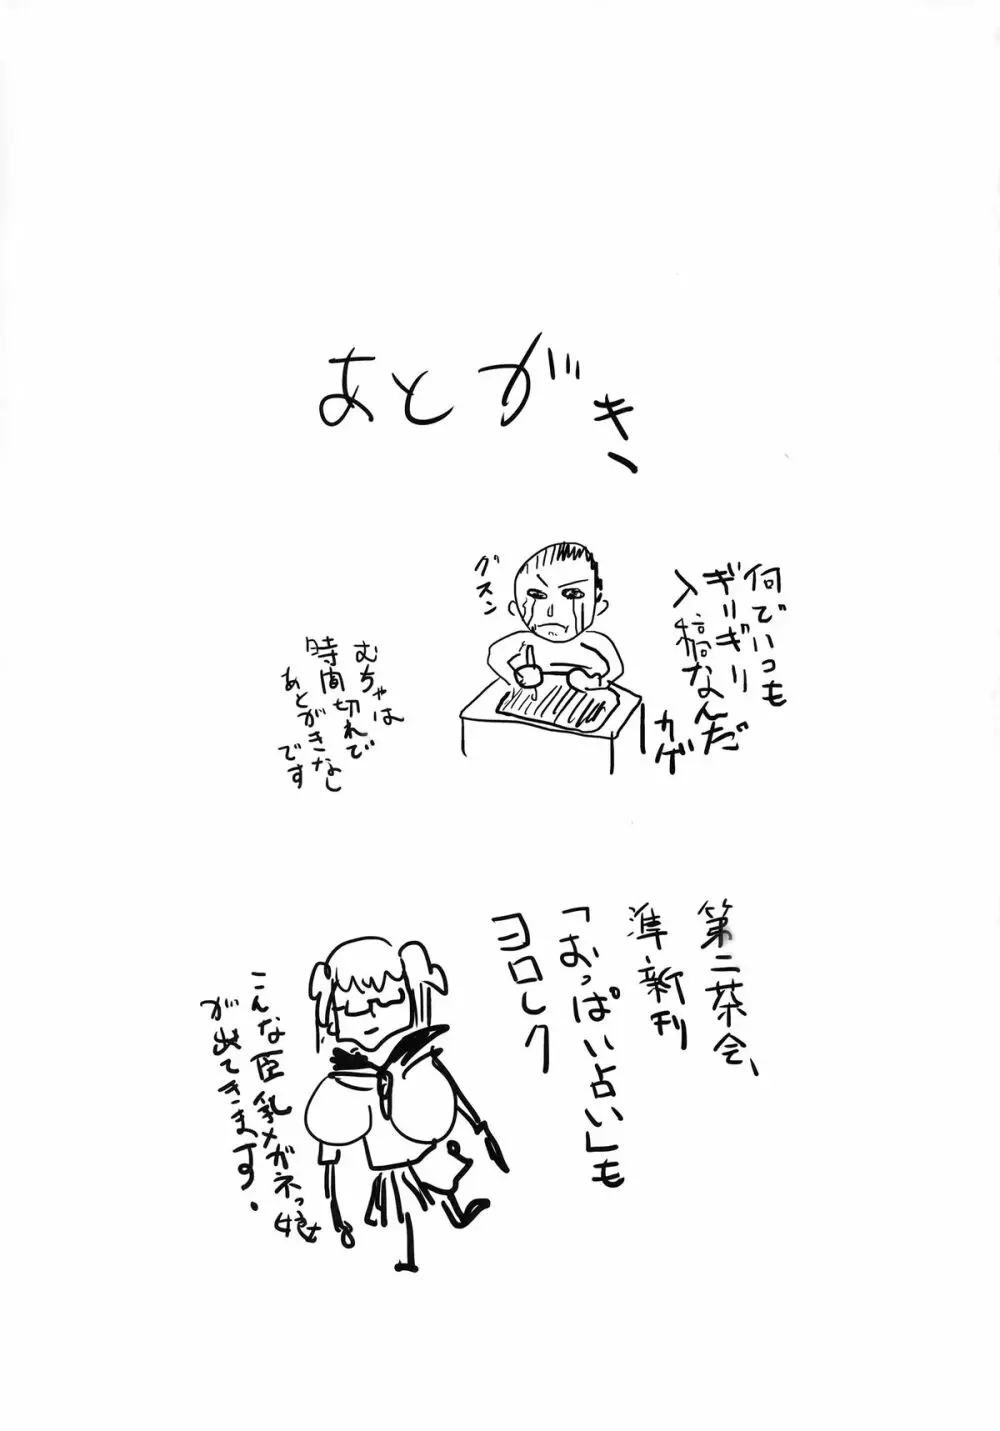 あとがき
何でいつも
ギリギリ
入稿なんだ
カゲ
グスン
むちゃは
時間切れで
あとがきなし
です
第二茶会、
準・新刊
「おっぱい占い」も
ヨロシク
こんな臣乳メガネっ娘
が出てきます。